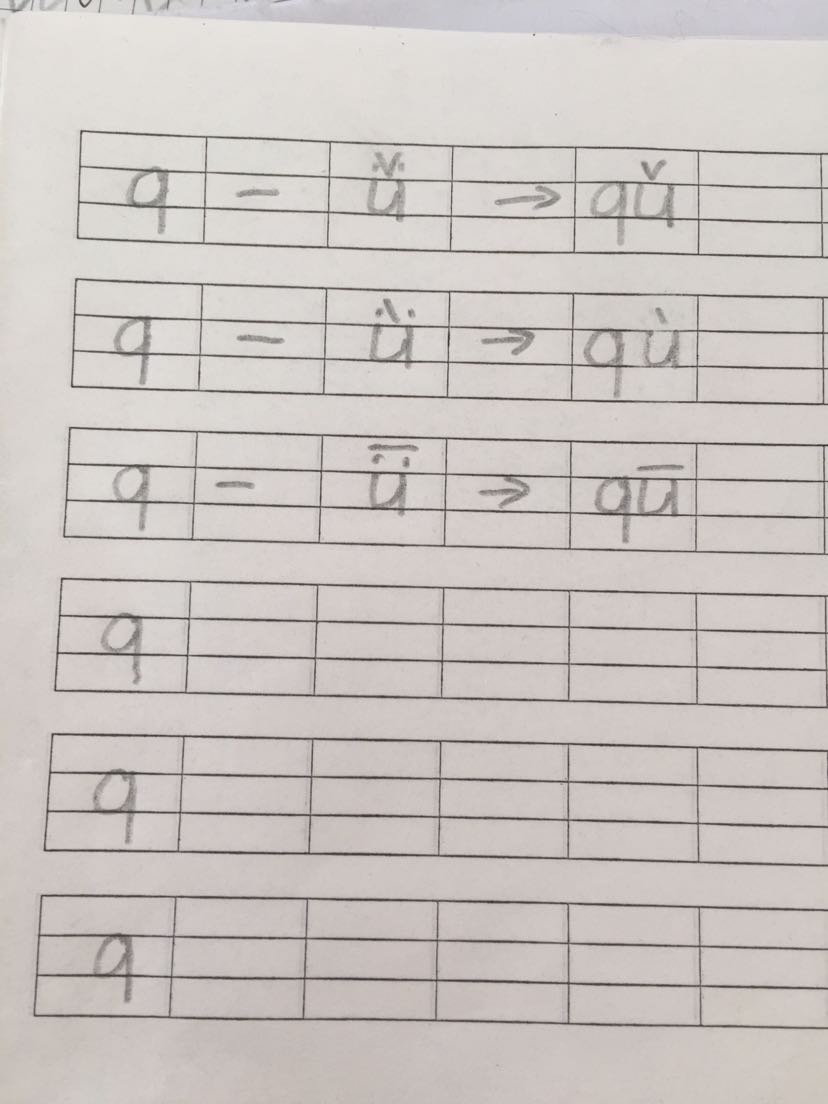 q - ǚ → qǔ
q - ǜ → qù
q - ǖ → qū
q
q
q